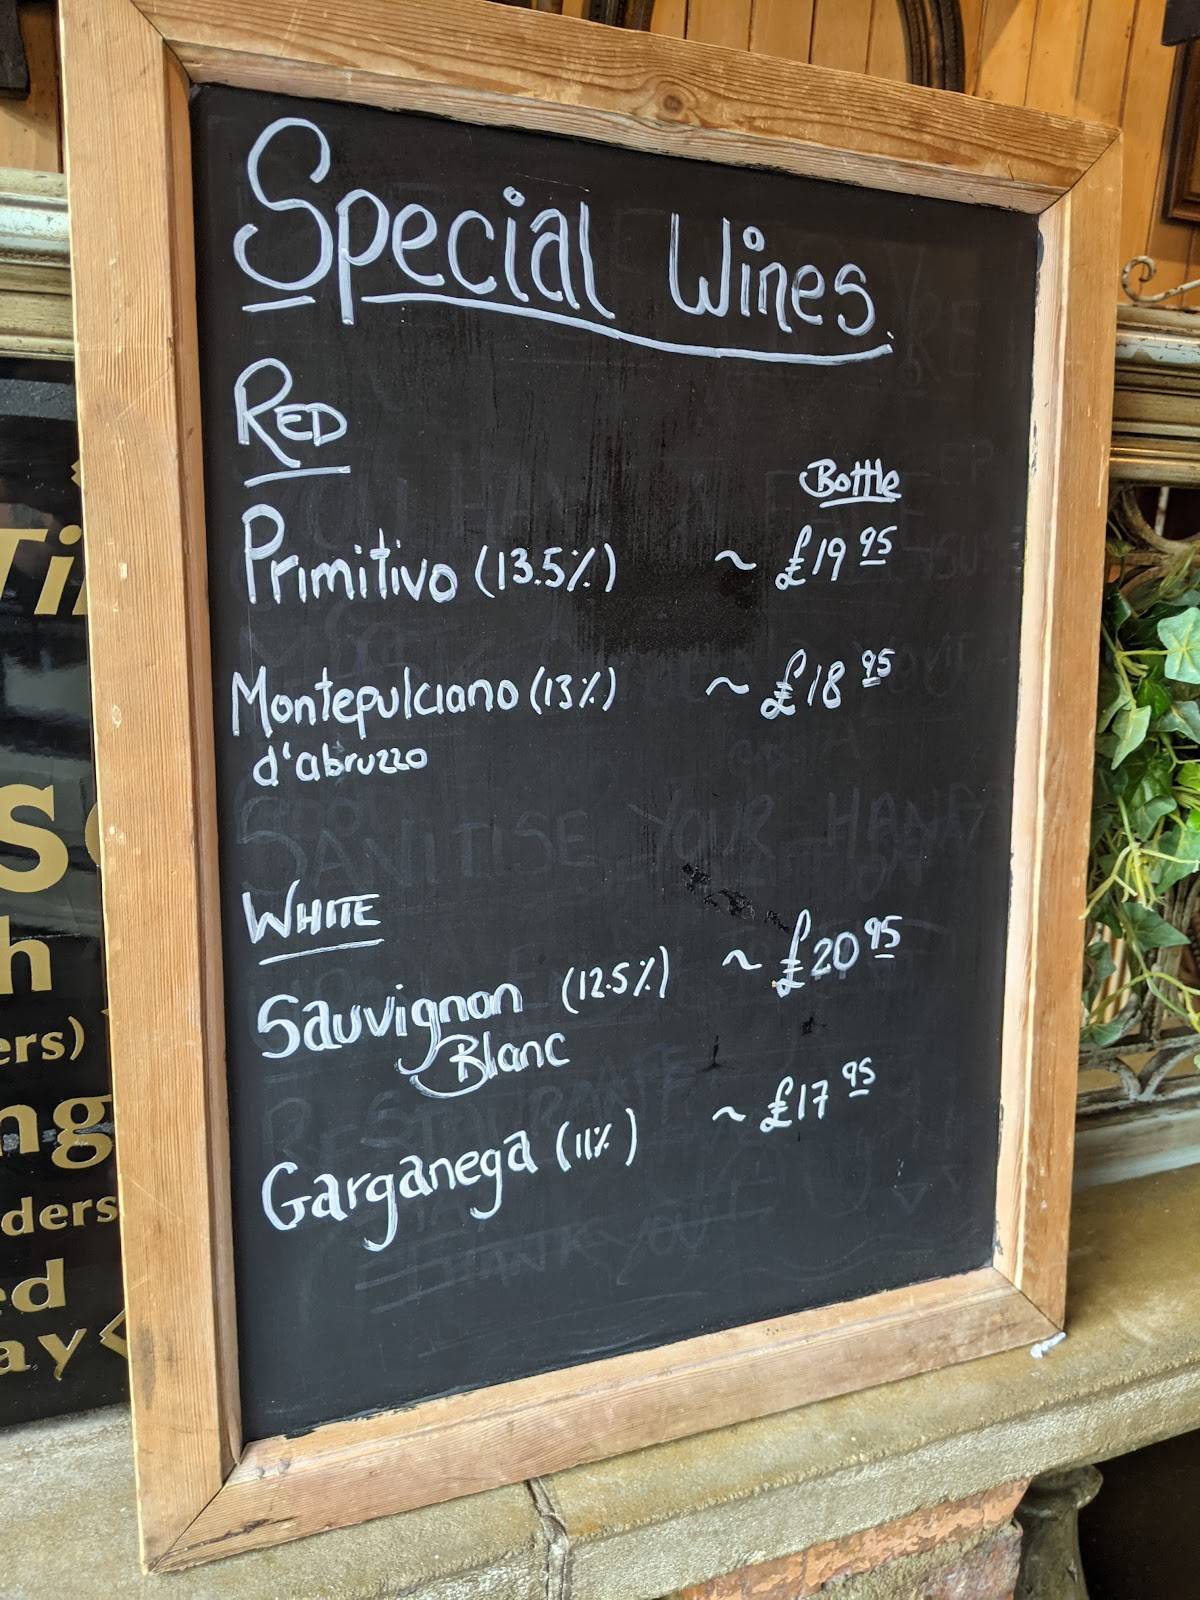 Special Wines.
RED
Bottle
Primitivo (13.5%) ~ £19 95
Montepulciano (13%) ~ £18 95
d'abruzzo
SANITISE YOUR HANDS
WHITE
Sauvignon (12.5%) ~ £20 95
Blanc
Garganega (11%) ~ £17 95
THANK YOU
Ti
s
h
ers)
ng
ders
ed
ay